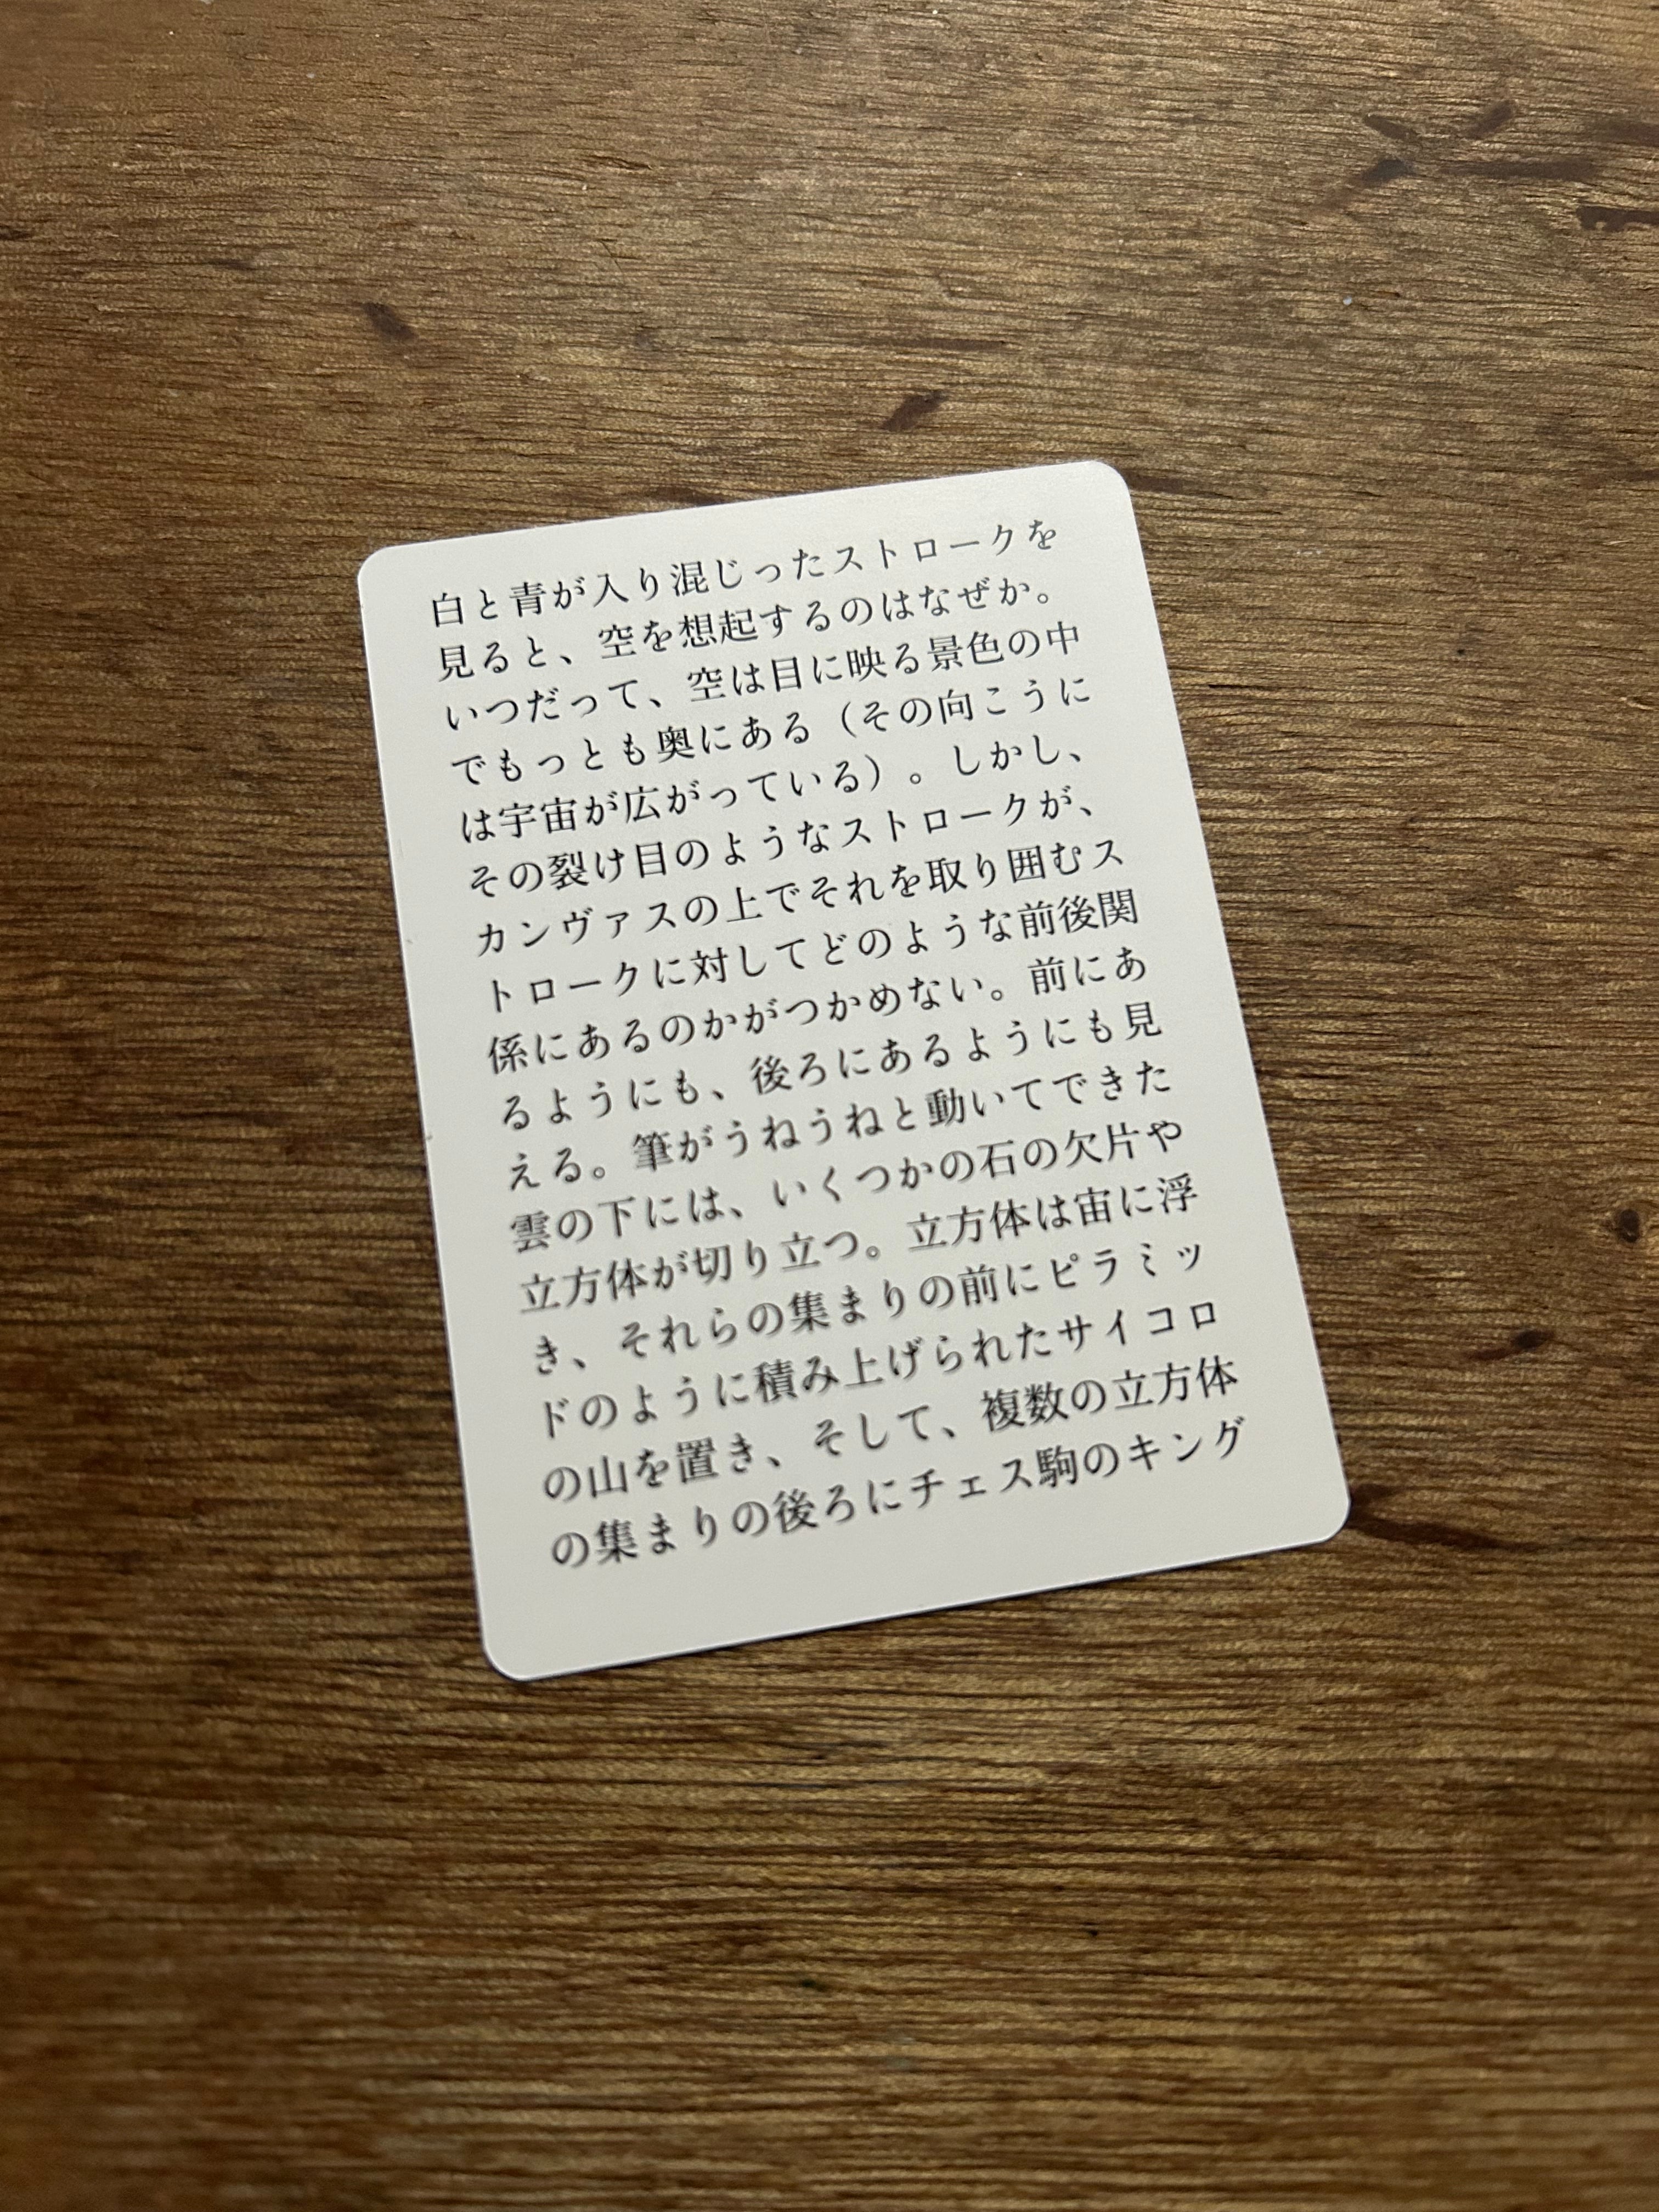 白と青が入り混じったストロークを
見ると、空を想起するのはなぜか。
いつだって、空は目に映る景色の中
でもっとも奥にある（その向こうに
は宇宙が広がっている）。しかし、
その裂け目のようなストロークが、
カンヴァスの上でそれを取り囲むス
トロークに対してどのような前後関
係にあるのかがつかめない。前にあ
るようにも、後ろにあるようにも見
える。筆がうねうねと動いてできた
雲の下には、いくつかの石の欠片や
立方体が切り立つ。立方体は宙に浮
き、それらの集まりの前にピラミッ
ドのように積み上げられたサイコロ
の山を置き、そして、複数の立方体
の集まりの後ろにチェス駒のキング